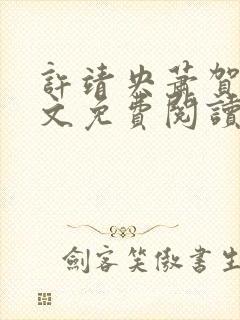 許靖央蕭賀
文免費閱讀
劍客笑傲書生